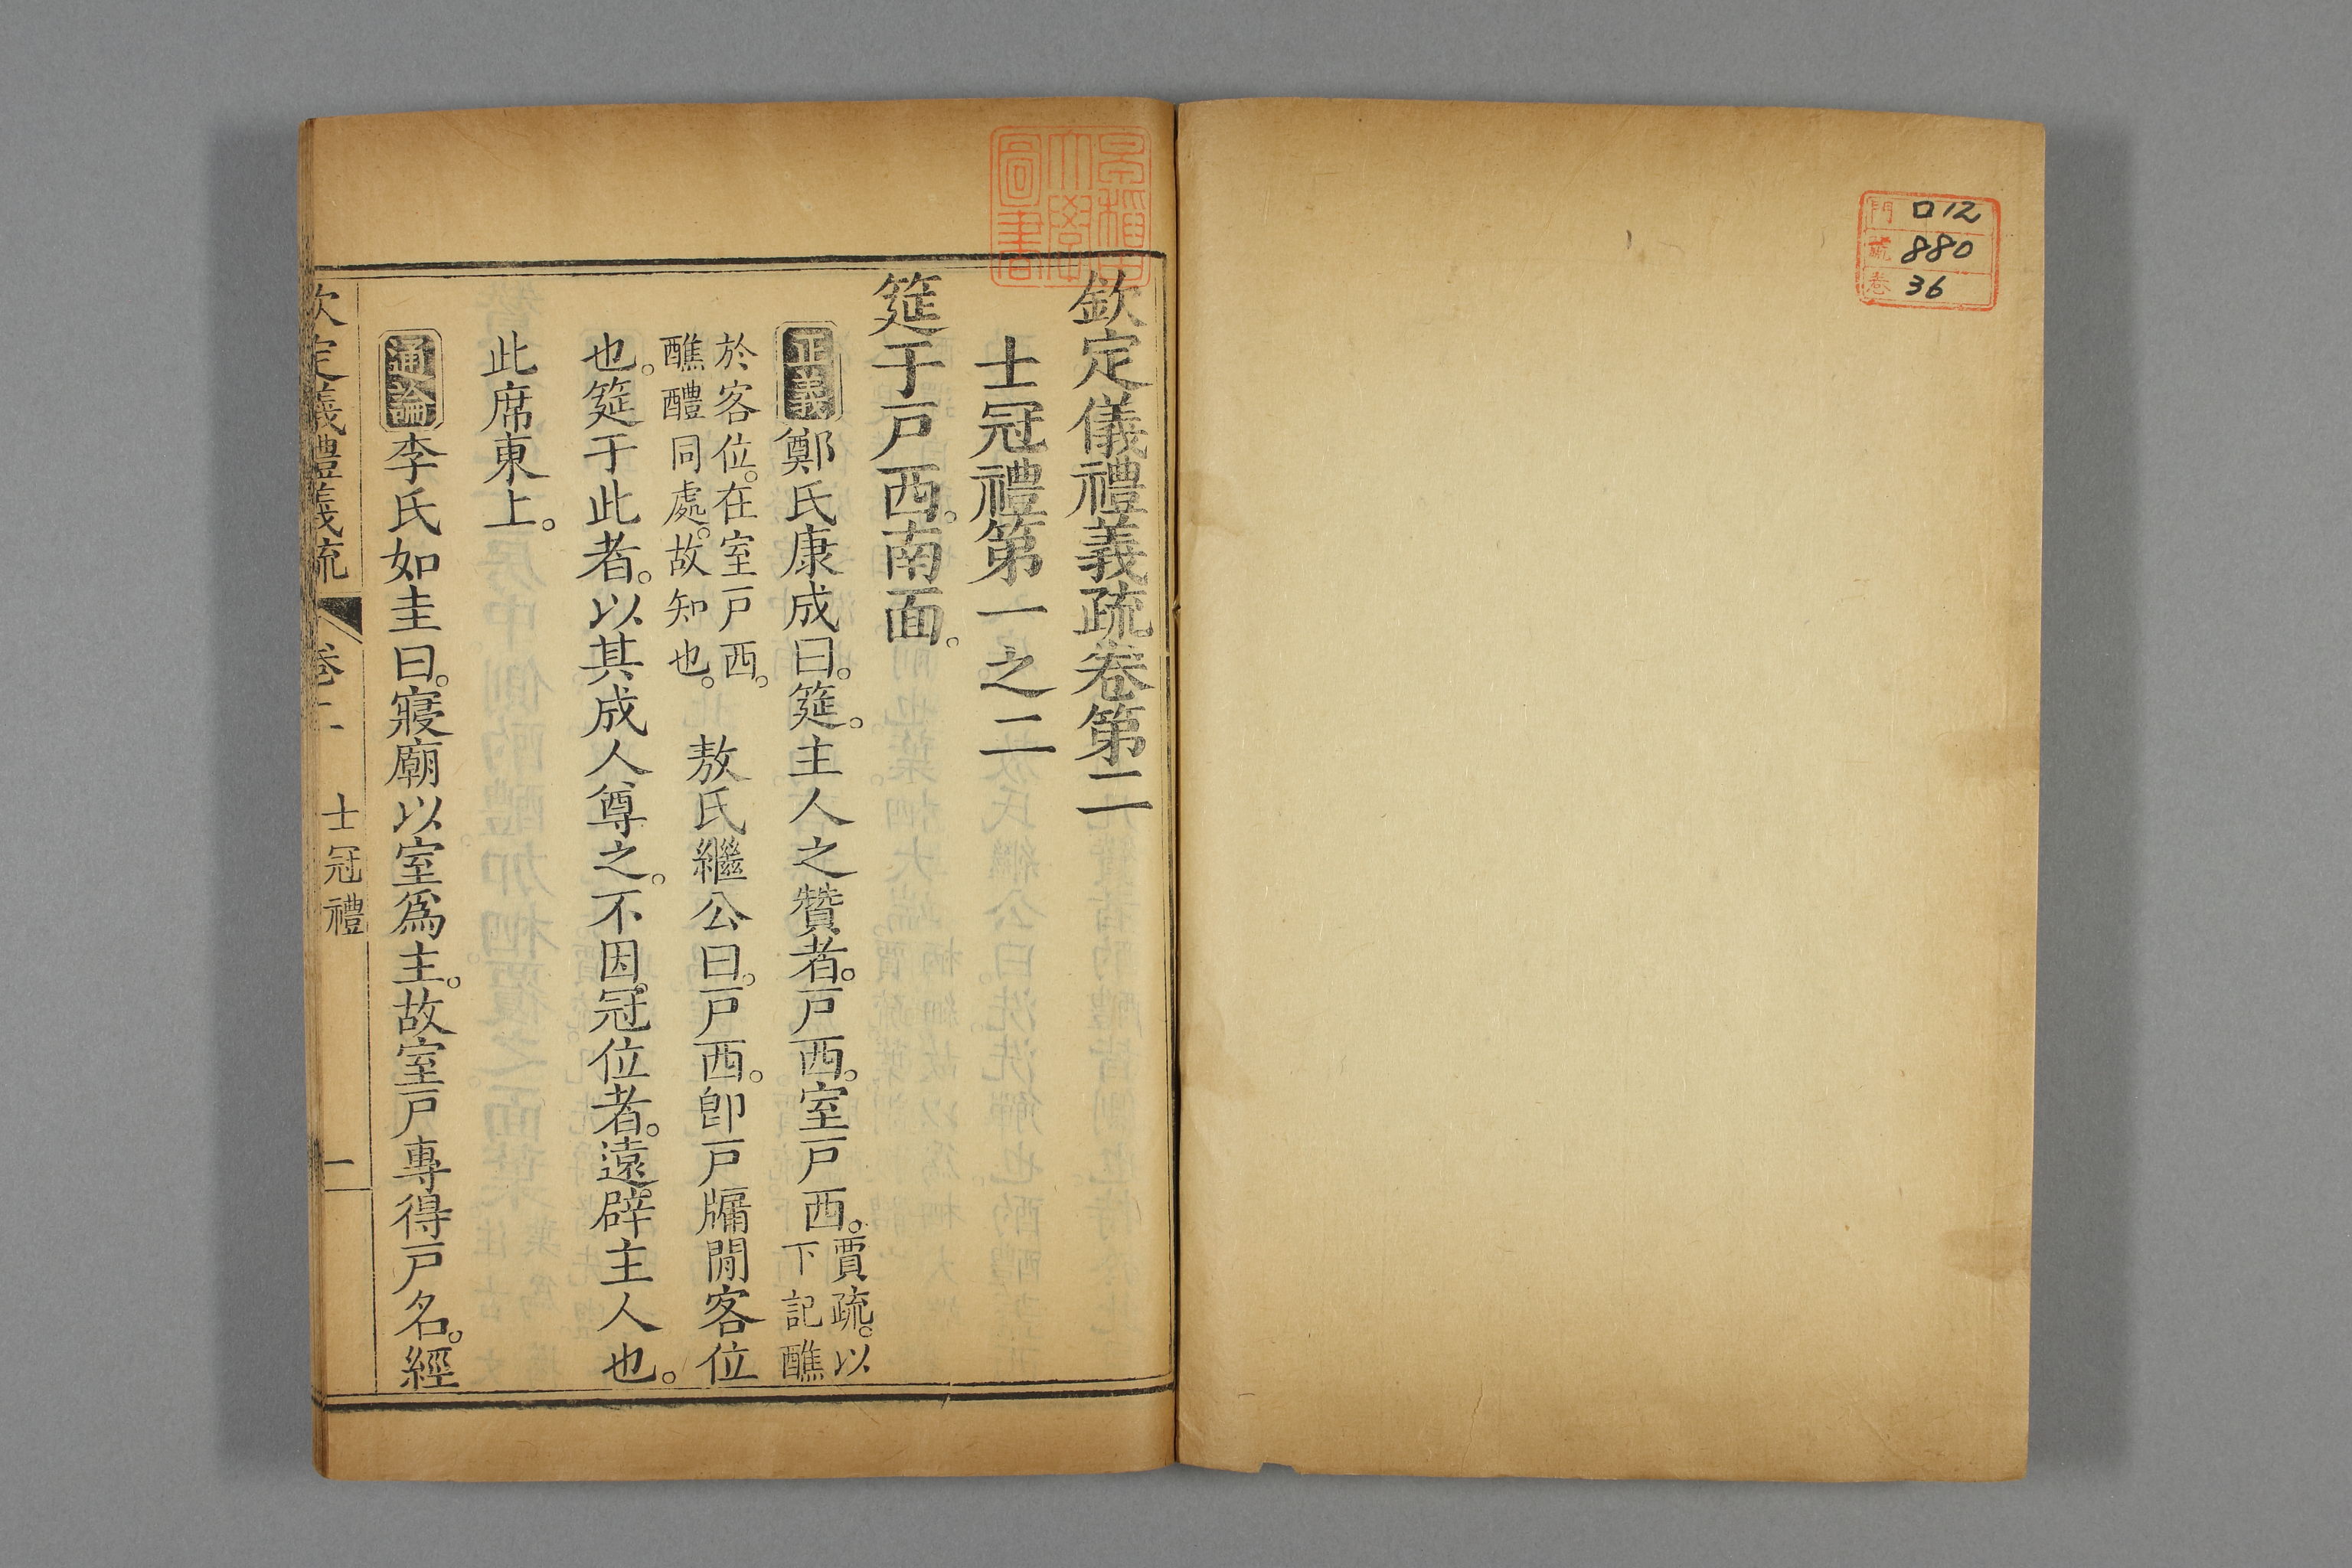 門 ロ12
號 880
卷 36
早稲田大學圖書
欽定儀禮義疏卷第二
士冠禮第一之二
筵于戸西。南面。
正義鄭氏康成曰。筵。主人之贊者。戸西。室戸西。賈疏。以下記醮
於客位。在室戸西。醮醴同處。故知也。 敖氏繼公曰。戸西。卽戸牖閒客位
也。筵于此者。以其成人尊之。不因冠位者。遠辟主人也。
此席東上。
通論李氏如圭曰。寢廟以室爲主。故室戸專得戸名。經
欽定儀禮義疏 卷二 士冠禮 一